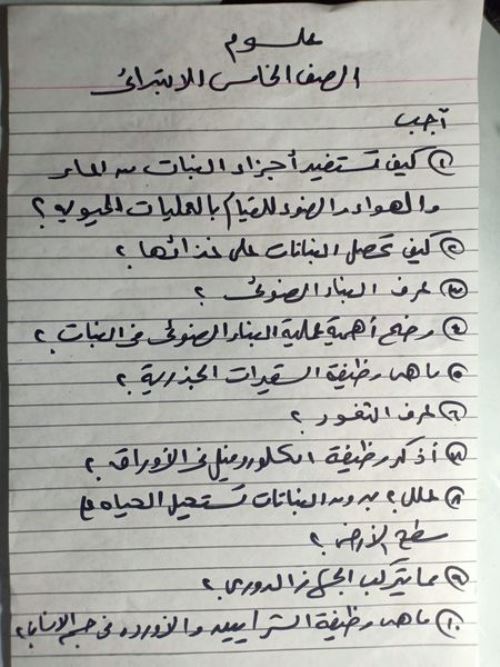 علوم
الصف الخامس الابتدائى
آجب
١) كيف تستفيد أجزاء النبات من الماء
والهواء والضوء للقيام بالعمليات الحيوية ؟
٢) كيف تحصل النباتات على غذائها ؟
٣) عرف البناء الضوئى ؟
٤) وضح أهمية عملية البناء الضوئى فى النبات ؟
٥) ما هى وظيفة الشعيرات الجذرية ؟
٦) عرف الثغور ؟
٧) أذكر وظيفة الكلوروفيل فى الأوراق ؟
٨) علل ؟ بدون النباتات تستحيل الحياه على
سطح الأرض ؟
٩) مما يتركب الجهاز الدورى ؟
١٠) ما هى وظيفة الشرايين والأورده فى جسم الانسان ؟